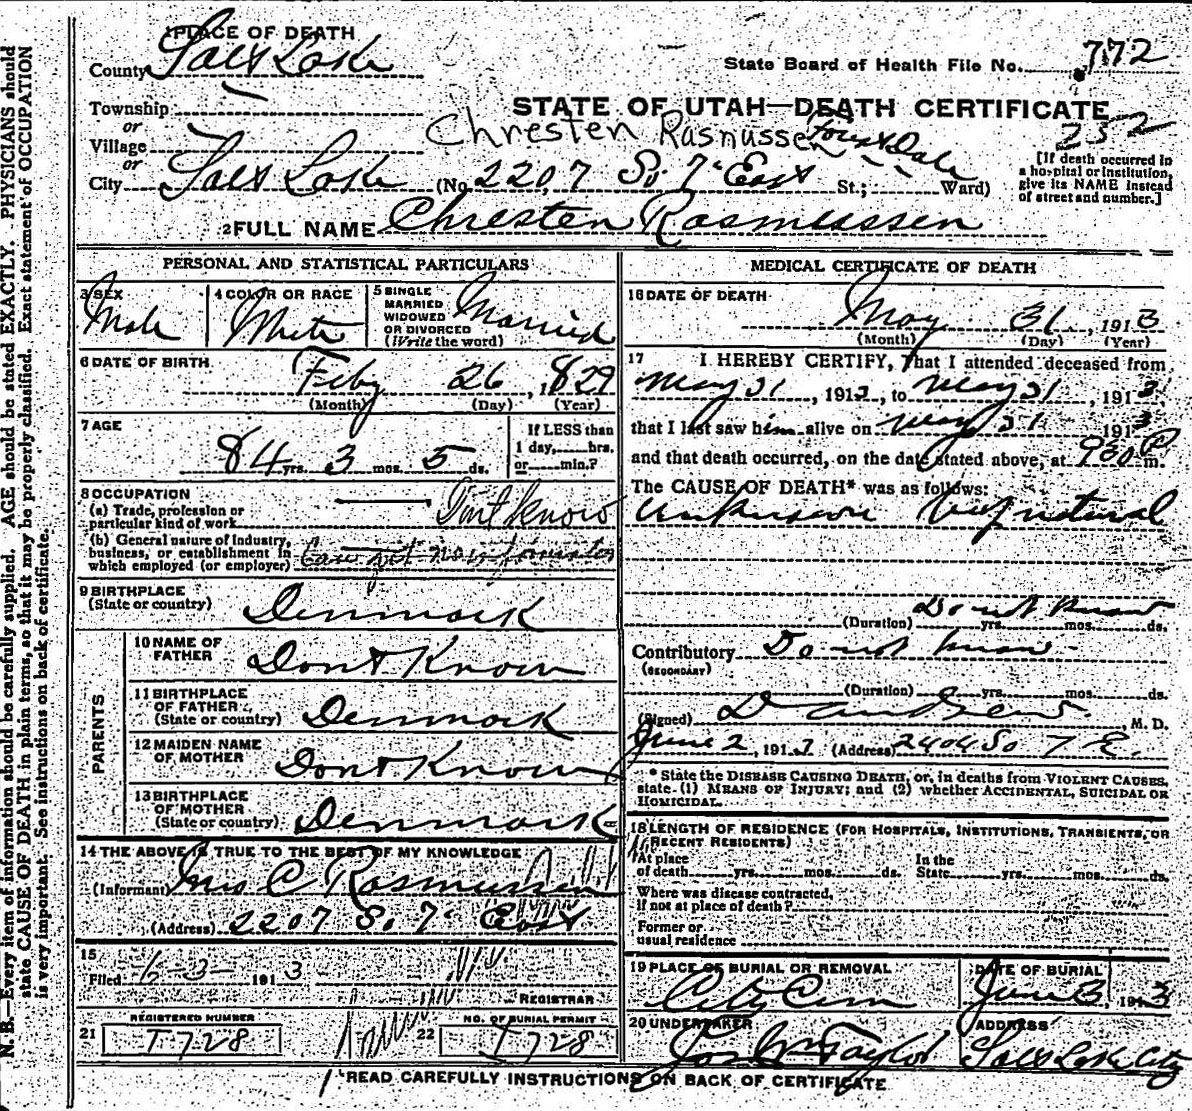 N. B.—Every item of information should be carefully supplied. AGE should be stated EXACTLY. PHYSICIANS should
state CAUSE OF DEATH in plain terms, so that it may be properly classified. Exact statement of OCCUPATION
is very important. See instructions on back of certificate.
1 PLACE OF DEATH
County Salt Lake
State Board of Health File No. 772
Township
STATE OF UTAH—DEATH CERTIFICATE
or
Chresten Rasmussen
232
Village
or
City Salt Lake (No. 2207 So. 7 East St.; Ward)
[If death occurred in
a hospital or institution,
give its NAME instead
of street and number.]
2 FULL NAME Chresten Rasmussen
PERSONAL AND STATISTICAL PARTICULARS
3 SEX
Male
4 COLOR OR RACE
White
5 SINGLE
MARRIED
WIDOWED
OR DIVORCED
(Write the word)
Married
6 DATE OF BIRTH
Feby 26, 829
(Month) (Day) (Year)
7 AGE
84 yrs. 3 mos. 5 ds.
If LESS than
1 day, hrs.
or min.?
8 OCCUPATION
(a) Trade, profession or
particular kind of work Dont Know
(b) General nature of industry,
business, or establishment in
which employed (or employer)
9 BIRTHPLACE
(State or country) Denmark
PARENTS
10 NAME OF
FATHER Dont Know
11 BIRTHPLACE
OF FATHER
(State or country) Denmark
12 MAIDEN NAME
OF MOTHER Dont Know
13 BIRTHPLACE
OF MOTHER
(State or country) Denmark
14 THE ABOVE IS TRUE TO THE BEST OF MY KNOWLEDGE
(Informant) Mrs C Rasmussen
(Address) 2207 So. 7 East
15
Filed 6-3- 1913
REGISTRAR
REGISTERED NUMBER
21 I 728
NO. OF BURIAL PERMIT
22 I 728
MEDICAL CERTIFICATE OF DEATH
16 DATE OF DEATH
May 31, 1913
(Month) (Day) (Year)
17 I HEREBY CERTIFY, That I attended deceased from
May 31, 1913, to May 31, 1913,
that I last saw him alive on May 31 1913
and that death occurred, on the date stated above, at 930 P m.
The CAUSE OF DEATH* was as follows:
Unknown natural
Do not know
(Duration) yrs. mos. ds.
Contributory Do not know
(SECONDARY)
(Duration) yrs. mos. ds.
(Signed) M. D.
June 2, 191 (Address) 2404 So 7 E.
* State the DISEASE CAUSING DEATH, or, in deaths from VIOLENT CAUSES,
state (1) MEANS OF INJURY; and (2) whether ACCIDENTAL, SUICIDAL OR
HOMICIDAL.
18 LENGTH OF RESIDENCE (FOR HOSPITALS, INSTITUTIONS, TRANSIENTS, OR
RECENT RESIDENTS)
At place
of death yrs. mos. ds.
In the
State yrs. mos. ds.
Where was disease contracted,
if not at place of death?
Former or
usual residence
19 PLACE OF BURIAL OR REMOVAL
City Cem
DATE OF BURIAL
June 3, 1913
20 UNDERTAKER
Jos Wm Taylor
ADDRESS
Salt Lake City
READ CAREFULLY INSTRUCTIONS ON BACK OF CERTIFICATE